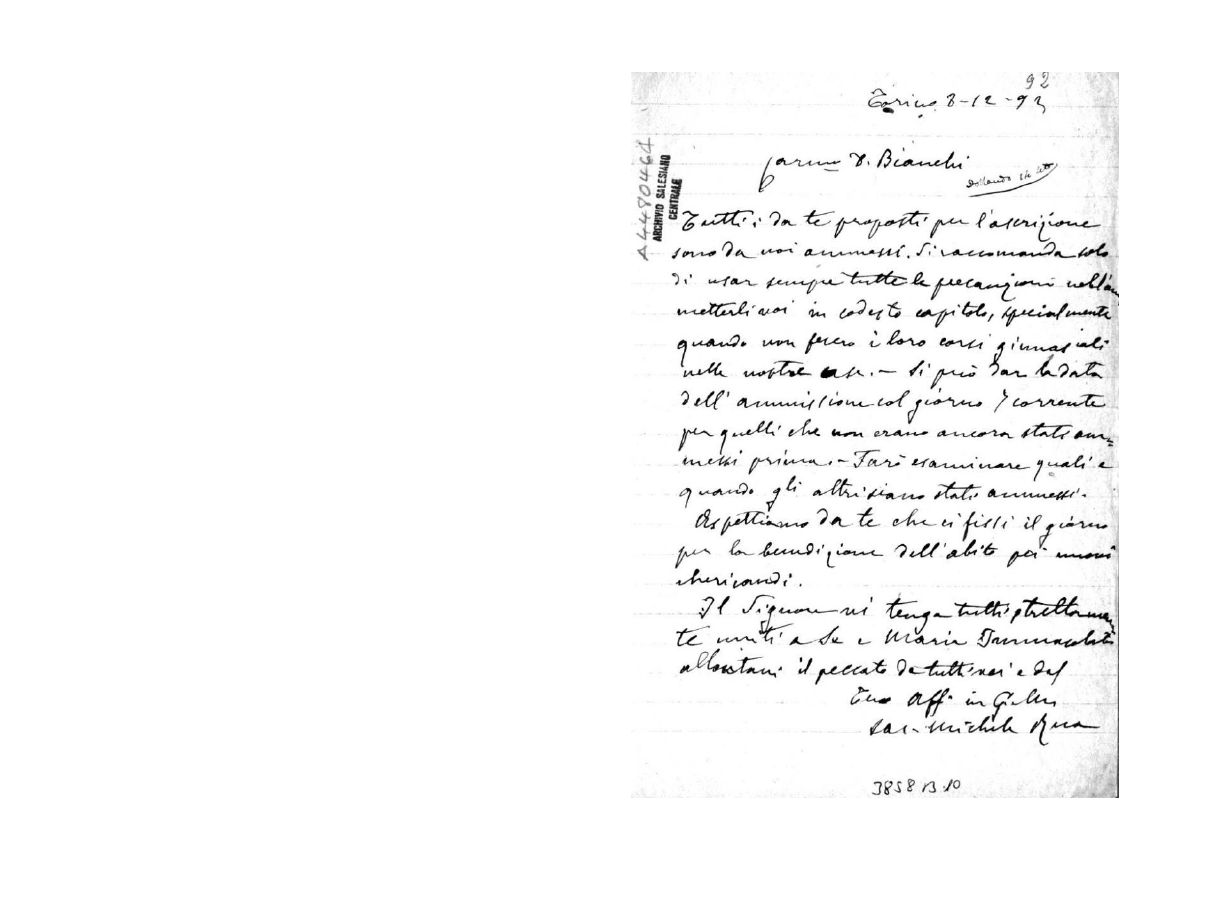 92
Torino 8-12-93
A4480464
ARCHIVIO SALESIANO
CENTRALE
Carmo D. Bianchi
Tutti i da te proposti per l'ascrizione
sono da noi ammessi. Si raccomanda solo
di usar sempre tutte le precauzioni nell'am
metterli voi in codesto capitolo, specialmente
quando non fecero i loro corsi ginnasiali
nelle nostre case. - Si può dar la data
dell'ammissione col giorno 7 corrente
per quelli che non erano ancora stati am=
messi prima. - Farò esaminare quali e
quando gli altri siano stati ammessi.
Aspettiamo da te che ci fissi il giorno
per la benedizione dell'abito pei nuovi
chericandi.
Il Signore vi tenga tutti strettamen
te uniti a Se e Maria Immacolata
allontani il peccato da tutti voi e dal
Tuo Aff. in G. e M.
Sac. Michele Rua
3858 B 10